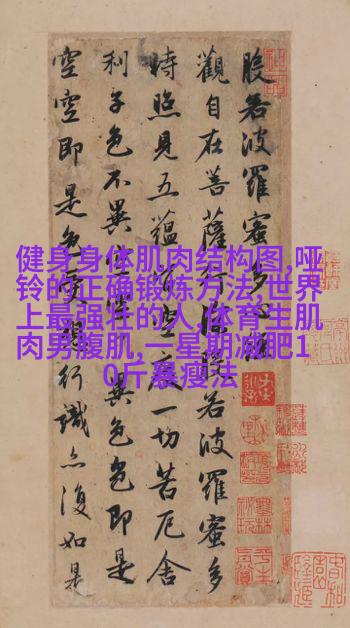 般若波羅蜜多心經
觀自在菩薩行深般若波羅蜜多
時照見五蘊皆空度一切苦厄舍
利子色不異空空不異色色即是
空空即是色受想行識亦復如是
健身身体肌肉结构图,哑
铃的正确锻炼方法,世界
上最强壮的人,体育生肌
肉男腹肌,一星期减肥1
0斤暴瘦法